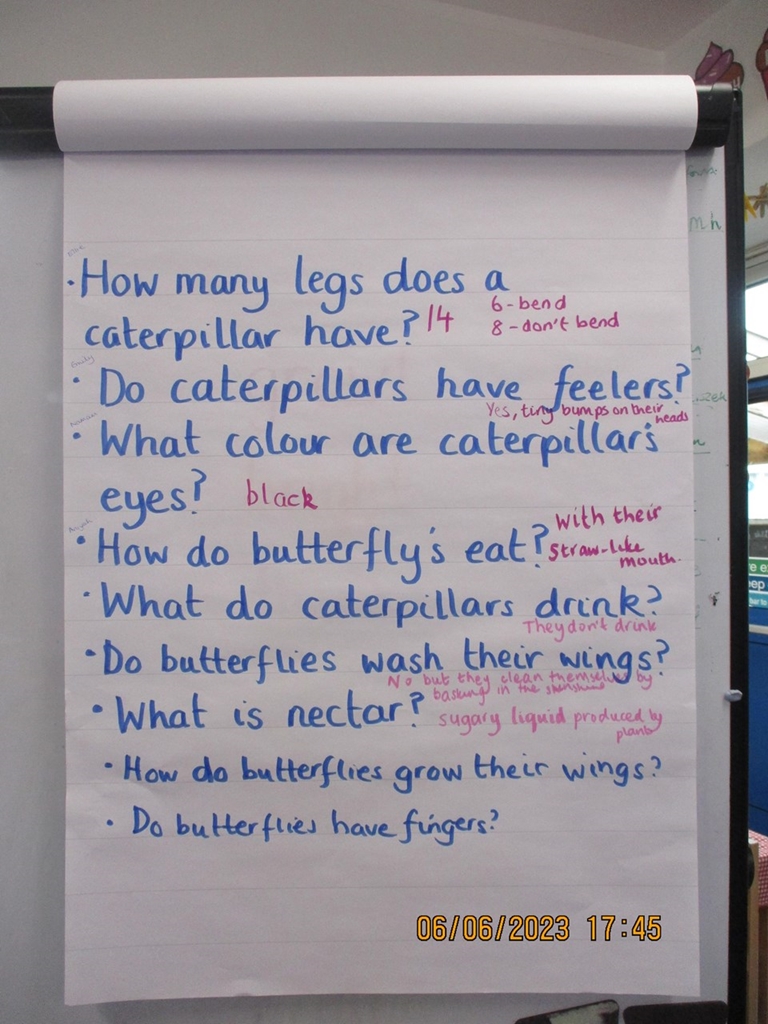 · How many legs does a
caterpillar have? 14
6 - bend
8 - don't bend
Emily
· Do caterpillars have feelers?
Yes, tiny bumps on their
heads
· What colour are caterpillar's
eyes? black
· How do butterfly's eat? with their
straw-like
mouth.
· What do caterpillars drink?
They don't drink
· Do butterflies wash their wings?
No but they clean themselves by
basking in the sunshine
· What is nectar? sugary liquid produced by
plants
· How do butterflies grow their wings?
· Do butterflies have fingers?
06/06/2023 17:45
m h